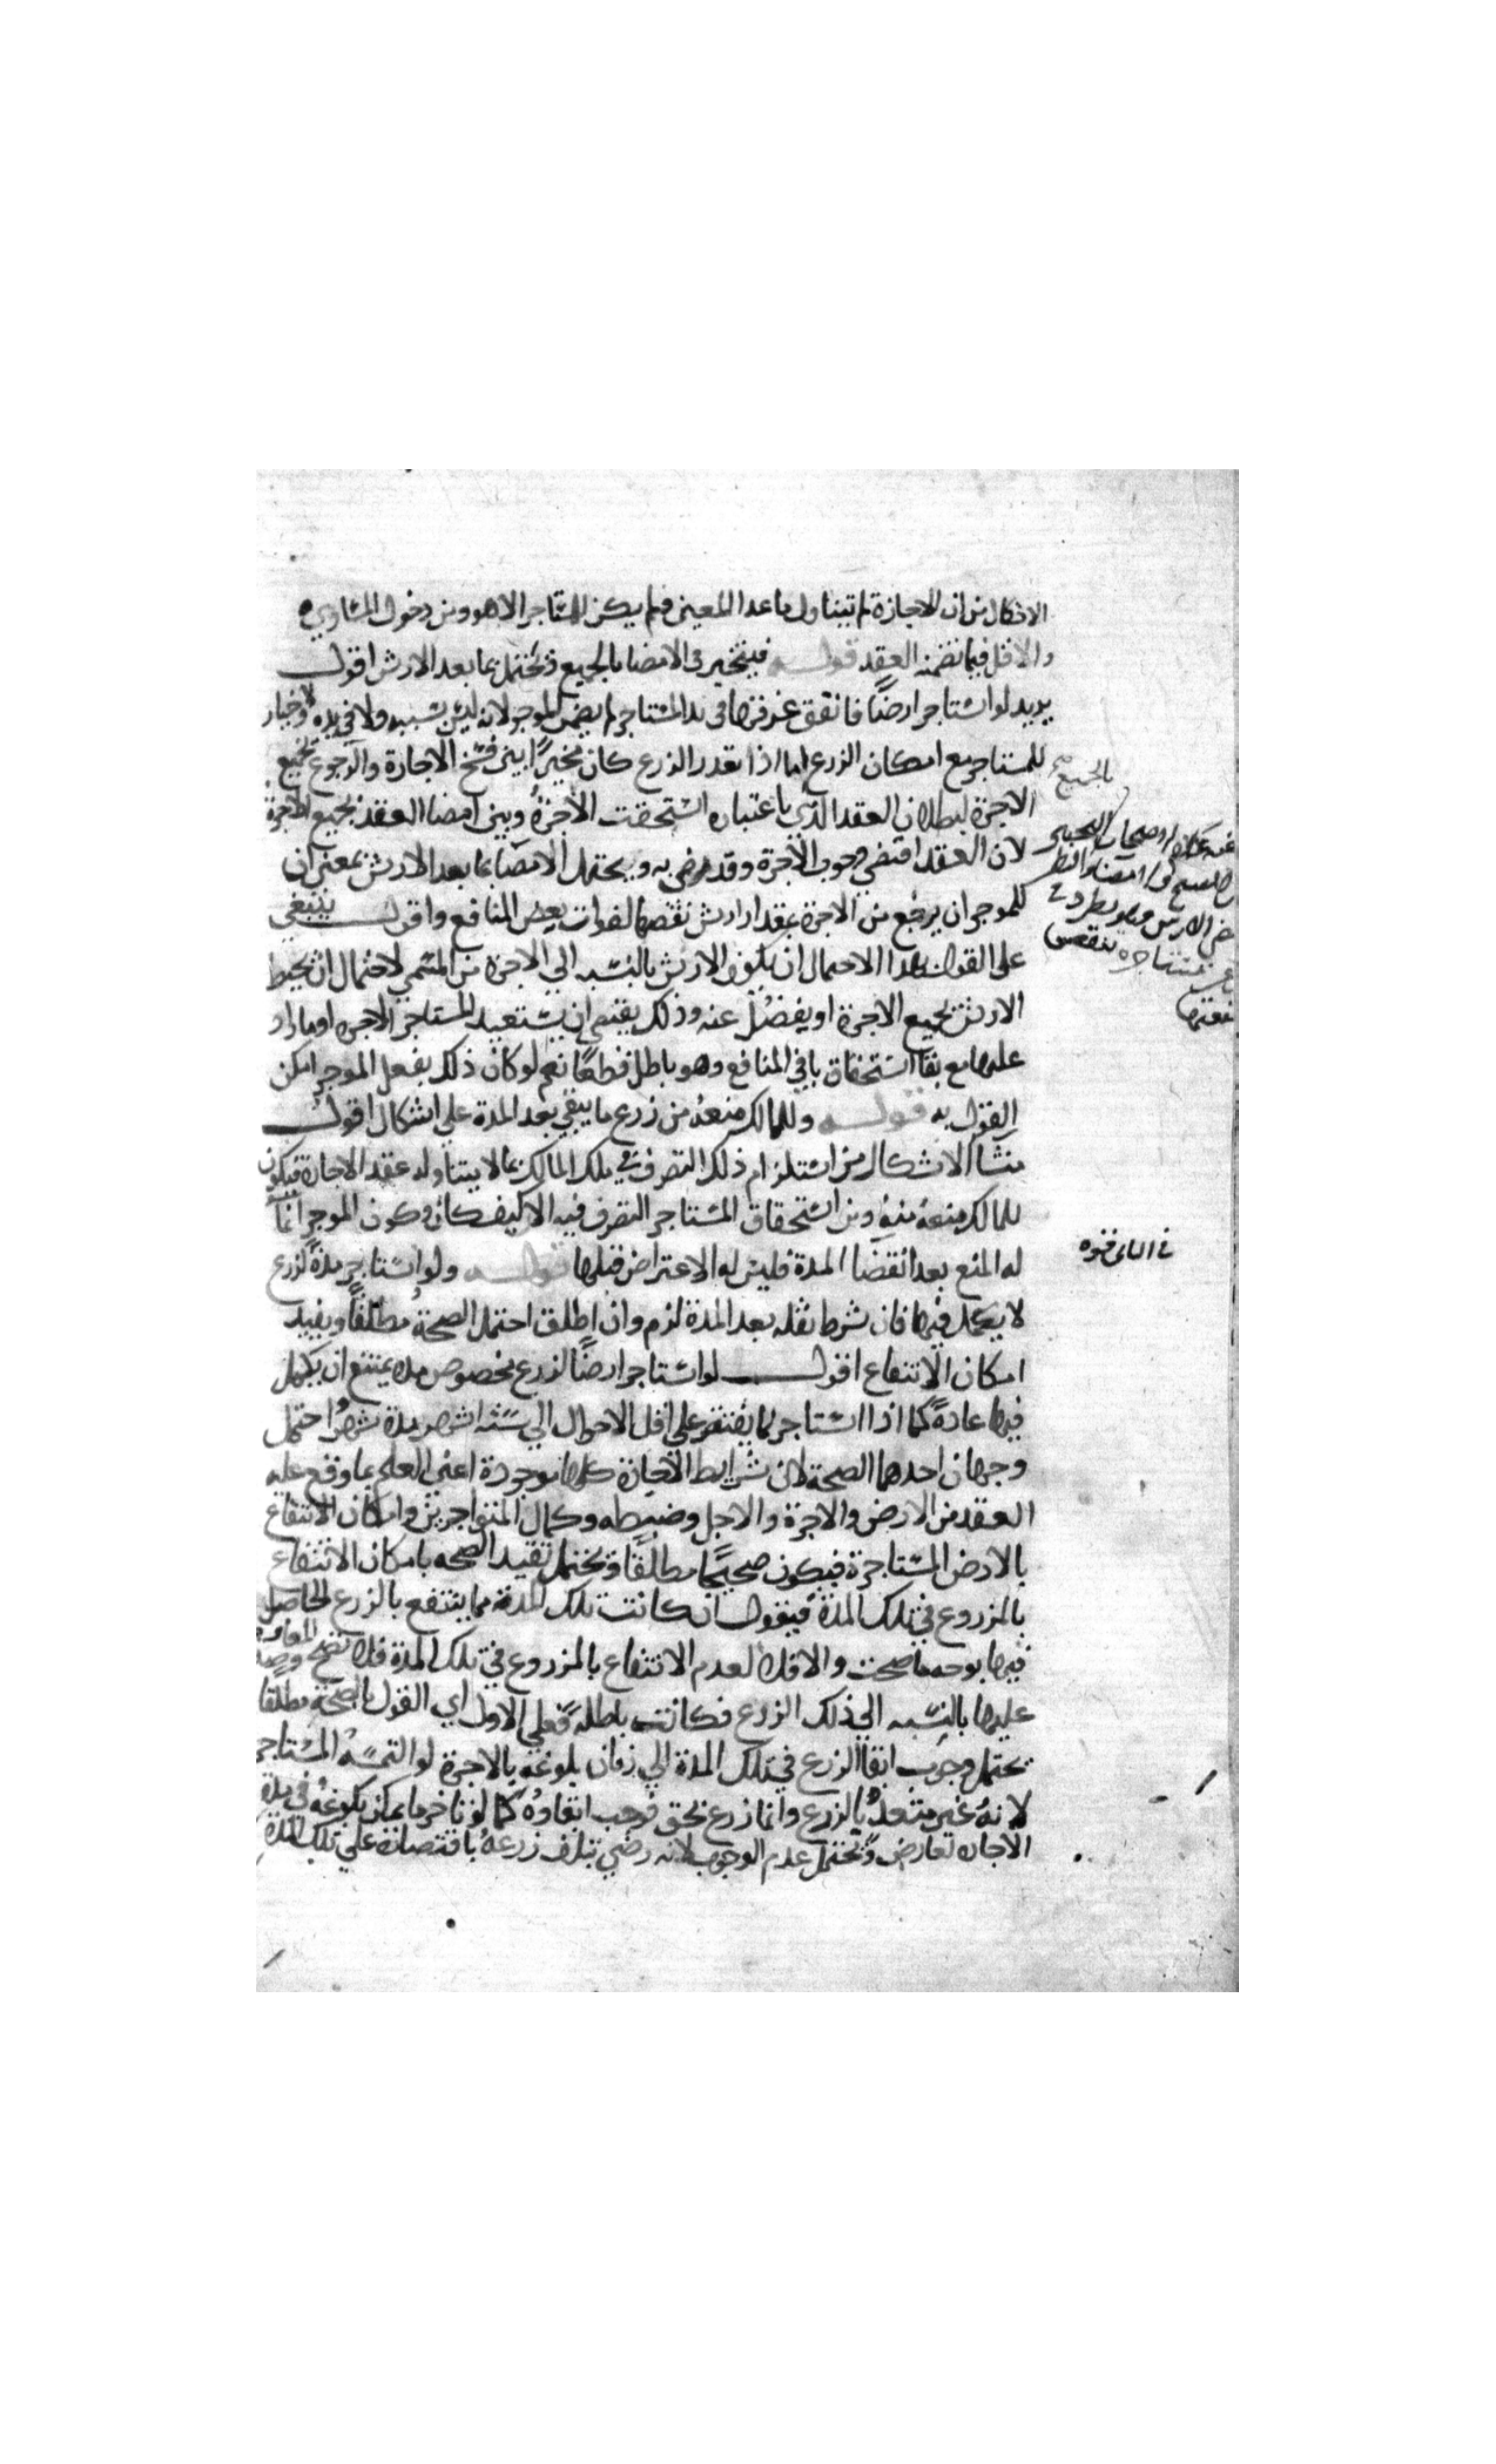 الاشكال من ان الاجازة لم تتناول ما عدا المعين فلم يكن للمستاجر الا هو ومن دخول المساوي
والاقل فيما تضمنه العقد قوله فيتخير في الامضا بالجميع ويحتمل بما بعد الارش اقول
يريد لو استاجر ارضًا فاتفق غرقها في يد المستاجر لم يضمن الموجر لانه ليس بسببه ولا في يده ولا خيار
للمستاجر مع امكان الزرع اما اذا تعذر الزرع كان مخيرًا بين فسخ الاجارة والرجوع بجميع
الاجرة لبطلان العقد الذي باعتباره استحقت الاجرة وبين امضا العقد بجميع الاجرة
لان العقد اقتضي وجوب الاجرة وقد رضي به ويحتمل الامضا بما بعد الارش بمعني ان
للموجر ان يرجع من الاجرة بقدر ارش نقصها لفوات بعض المنافع واقول ينبغي
على القول بهذا الاحتمال ان يكون الارش بالنسبه الي الاجرة من المسمي لاحتمال ان يحيط
الارش بجميع الاجرة او يفضل عنه وذلك يقتضي ان يستعيد المستاجر الاجره او ما زاد
عليها مع بقا استحقاق باقي المنافع وهو باطل قطعًا نعم لو كان ذلك بفعل الموجر امكن
القول به قوله وللمالك منعه من زرع ما يبقي بعد المدة علي اشكال اقول
منشا الاشكال من استلزام ذلك التصرف في ملك المالك بما لا يتناوله عقد الاجارة فيكون
للمالك منعه منه ومن استحقاق المستاجر التصرف فيه الا كيف كان وكون الموجر انما
له المنع بعد انقضا المدة فليس له الاعتراض قبلها قوله ولو استاجر مدة لزرع
لا يكمل فيها فان شرط نقله بعد المدة لزم وان اطلق احتمل الصحة مطلقًا وبقيد
امكان الانتفاع اقول لو استاجر ارضًا لزرع مخصوص مده يمتنع ان يكمل
فيها عادةً كما اذا استاجر لما يفتقر علي اقل الاحوال الي ستة اشهر مدة شهر احتمل
وجهان احدهما الصحة لان شرايط الاجارة كلها موجودة اعني العلم بما وقع عليه
العقد من الارض والاجرة والاجل وضبطه وكمال المتواجرين وامكان الانتفاع
بالارض المستاجرة فيكون صحيحًا مطلقًا ويحتمل تقييد الصحه بامكان الانتفاع
بالمزروع في تلك المدة فيقول ان كانت تلك المدة مما ينتفع بالزرع الحاصل
فيها بوجه ما صحت والا فلا لعدم الانتفاع بالمزروع في تلك المدة فلا تصح المعاوضه
عليها بالنسبه الي ذلك الزرع فكانت باطلة فعلي الاول اي القول بالصحة مطلقا
يحتمل وجوب ابقا الزرع في تلك المدة الي زمان بلوغه بالاجرة لو التمسه المستاجر
لانه غير متعد بالزرع وانما زرع بحق فوجب ابقاوه كما لو تاخر ما يمكن بلوغه في مدة
الاجاره تعارض ويحتمل عدم الوجوب لانه رضي بتلف زرعه باقتصاره علي تلك المدة
بالجميع